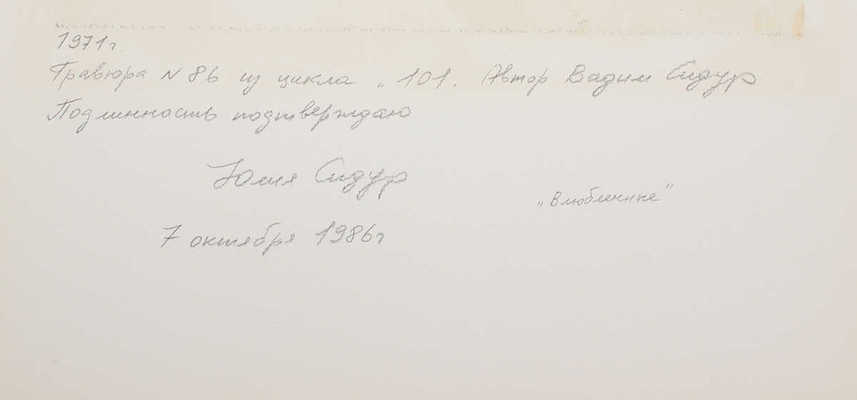 1971 г.
Гравюра N 86 из цикла „ 101. Автор Вадим Сидур
Подлинность подтверждаю
Юлия Сидур
„Влюбленные"
7 октября 1986 г